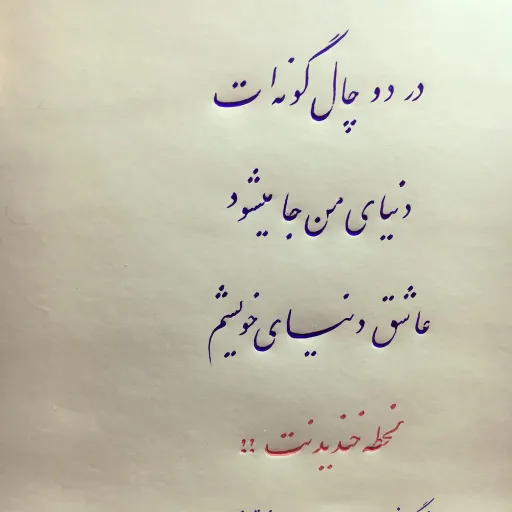 در دو چال گونه ات
دنیای من جا میشود
عاشق دنیای خویشم
لحظه خندیدنت !!